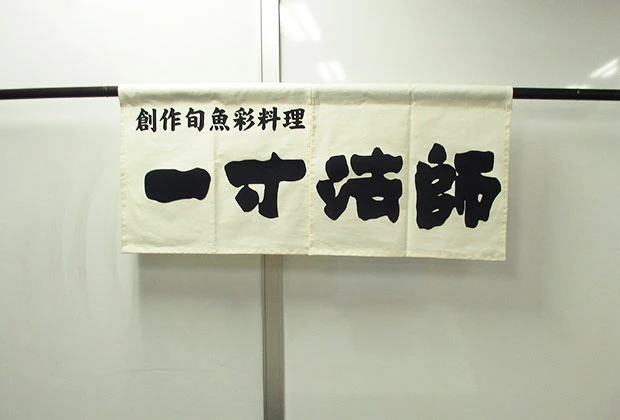 創作旬魚彩料理
一寸法師